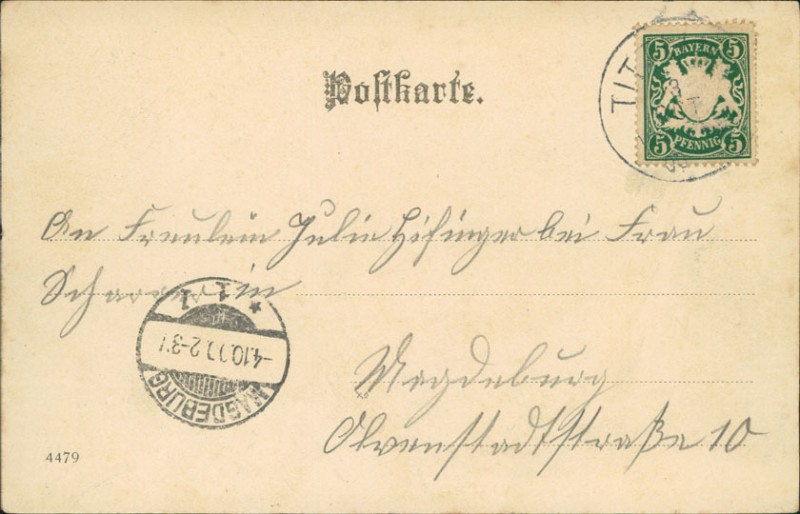 Postkarte.
5 BAYERN 5
5 PFENNIG 5
TIT
An Freulein Julie Hisinger bei Frau
in
Magdeburg
Olvenstadtstraße 10
MAGDEBURG
-4.10.00 2-3
* 1
4479